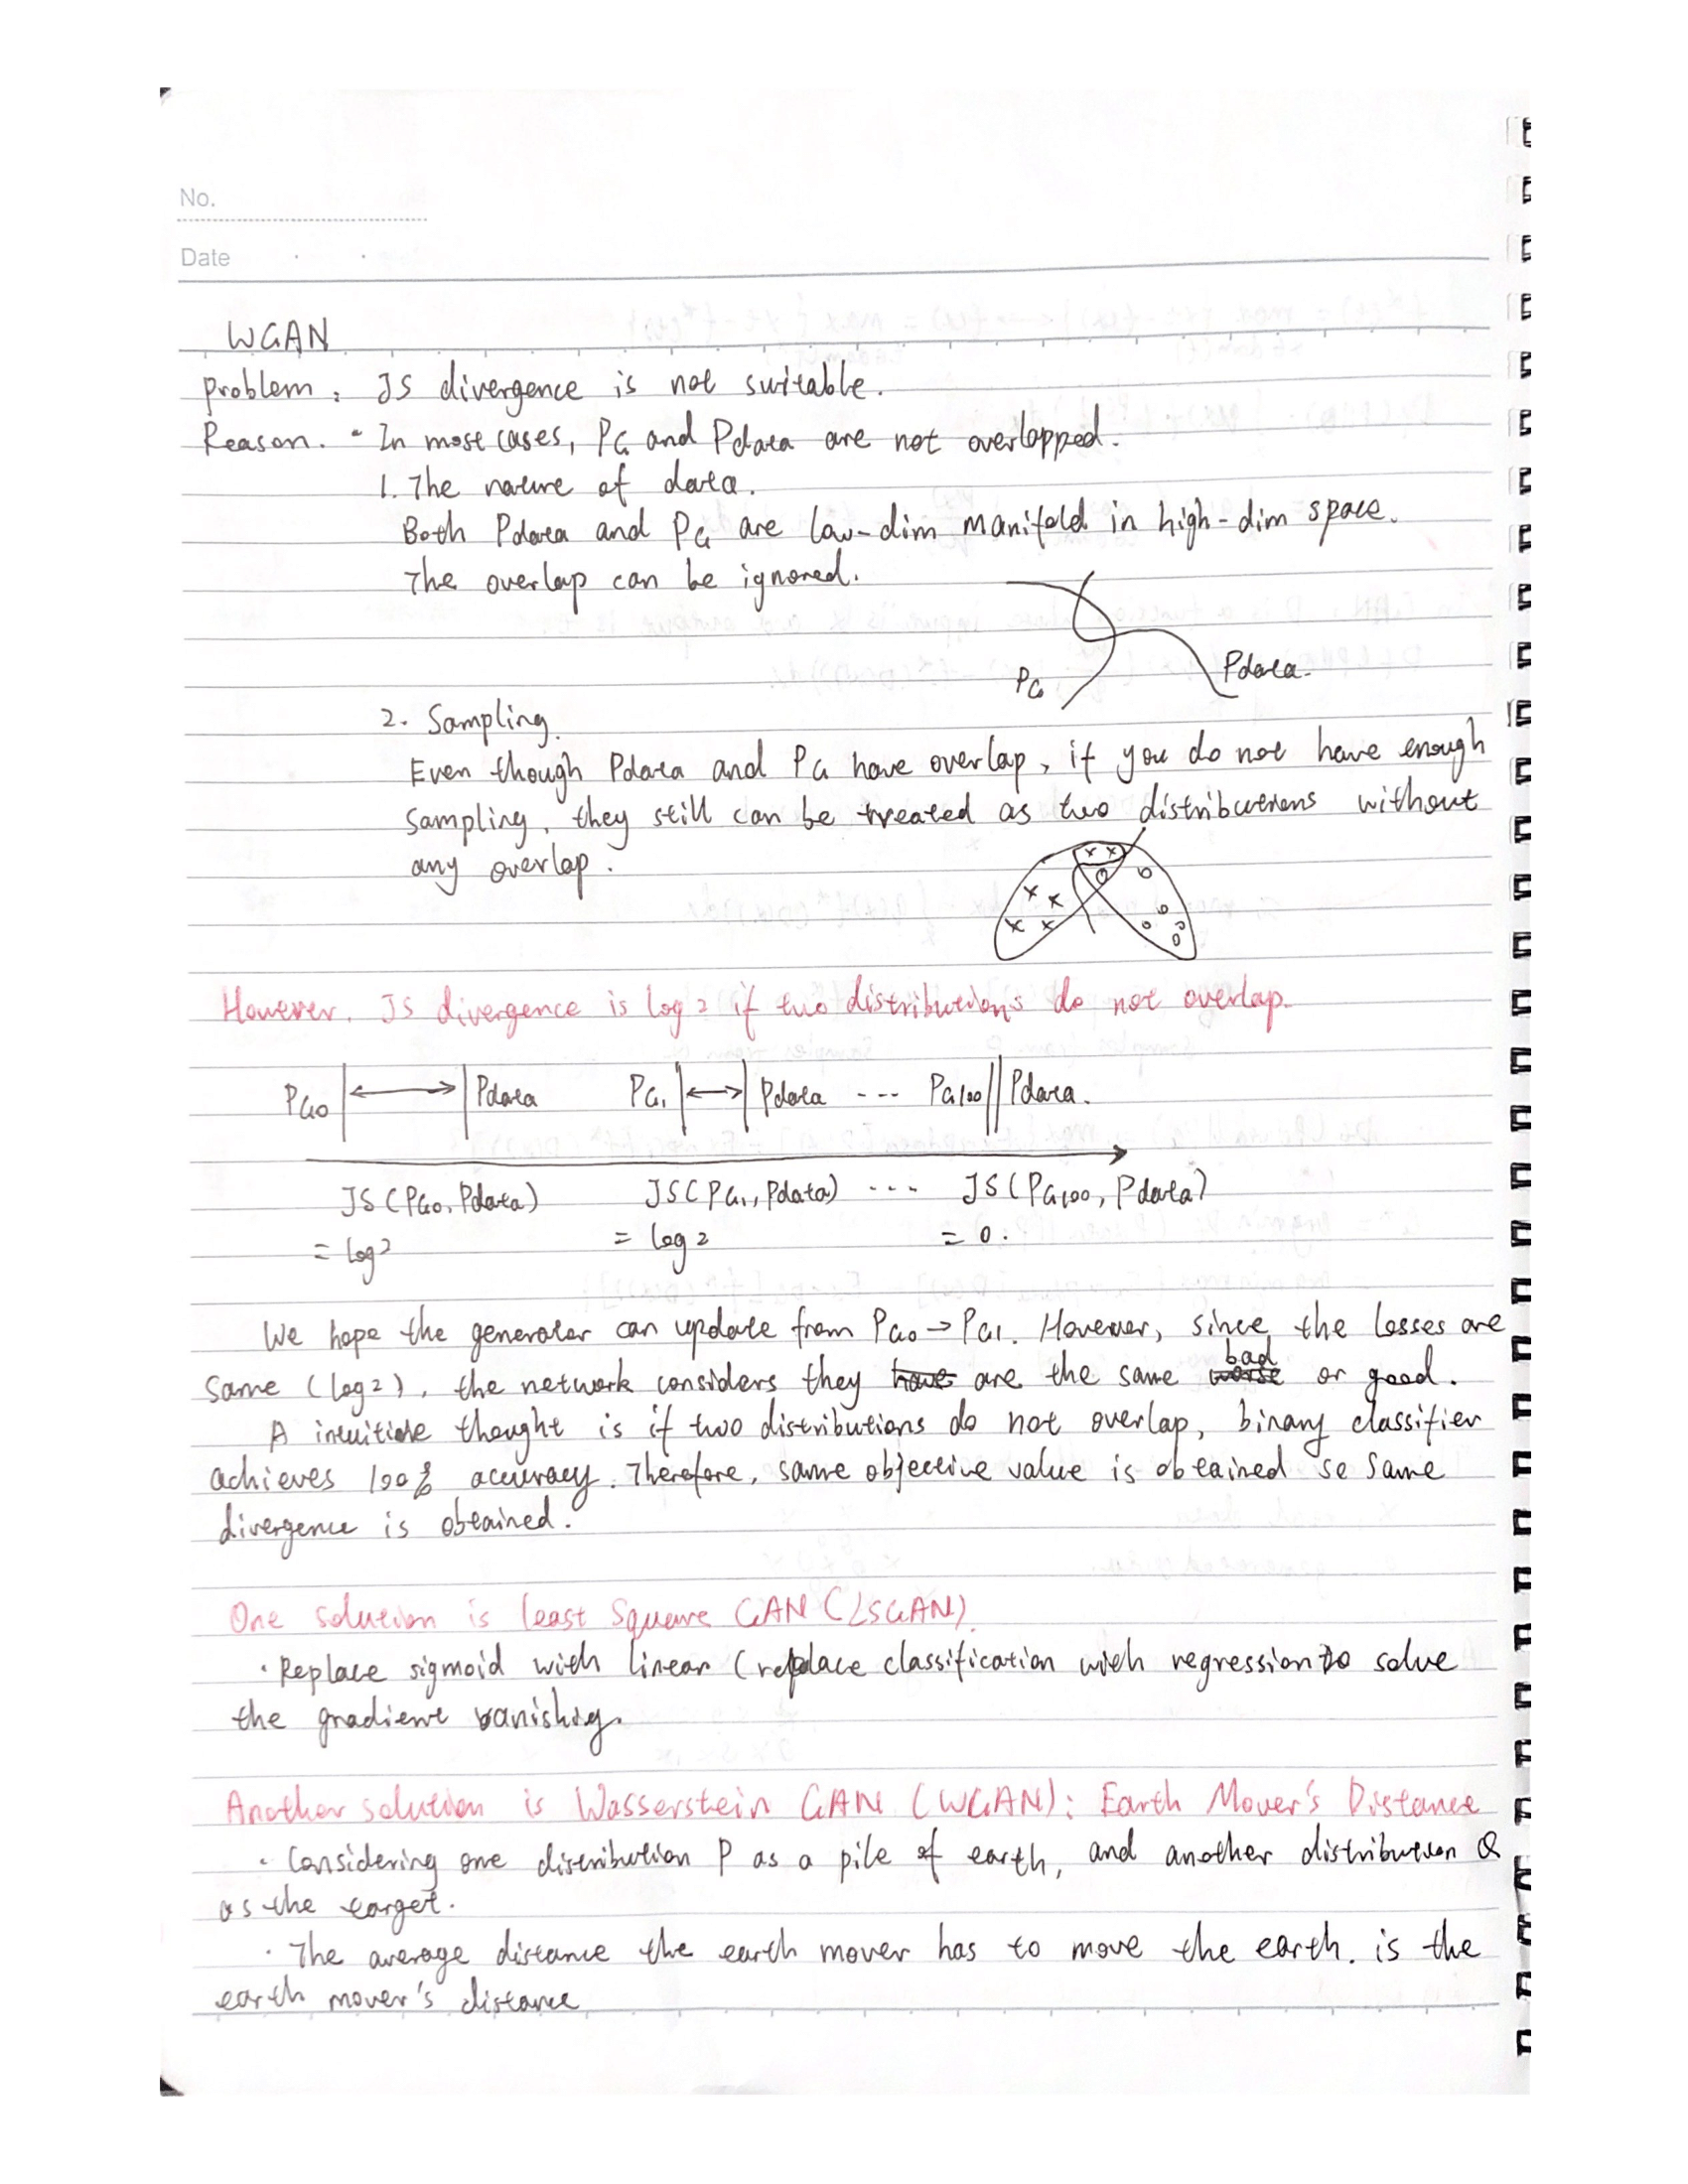 No.
Date
WGAN
Problem: JS divergence is not suitable.
Reason. · In most cases, PG and Pdata are not overlapped.
1. The nature of data.
Both Pdata and PG are low-dim manifold in high-dim space.
The overlap can be ignored.
PG Pdata.
2. Sampling.
Even though Pdata and PG have overlap, if you do not have enough
sampling, they still can be treated as two distributions without
any overlap.
However, JS divergence is log2 if two distributions do not overlap.
PG0 Pdata PG1 Pdata --- PG100 Pdata.
JS(PG0, Pdata) JS(PG1, Pdata) --- JS(PG100, Pdata)
= log2 = log2 = 0.
We hope the generator can update from PG0 → PG1. However, since the losses are
bad
same (log2), the network considers they have are the same worse or good.
A intuitive thought is if two distributions do not overlap, binary classifier
achieves 100% accuracy. Therefore, same objective value is obtained so same
divergence is obtained.
One solution is least square GAN (LSGAN).
· Replace sigmoid with linear (replace classification with regression to solve
the gradient vanishig.
Another solution is Wasserstein GAN (WGAN): Earth Mover's Distance
· Considering one distribution P as a pile of earth, and another distribution Q
as the target.
· The average distance the earth mover has to move the earth. is the
earth mover's distance